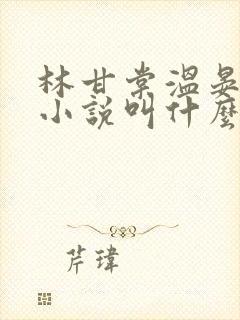 林甘棠温晏
小説叫什麼
芹瑋